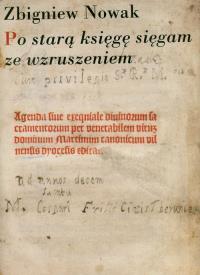 Zbigniew Nowak
Po starą księgę sięgam
ze wzruszeniem
Cum privilegio S. R. M.
Agenda siue exequiale diuinorum sa
cramentorum per venerabilem virum
dominum Martinum canonicum vil
nensis dyocesis edita.
ad annos decem
M. Caspari